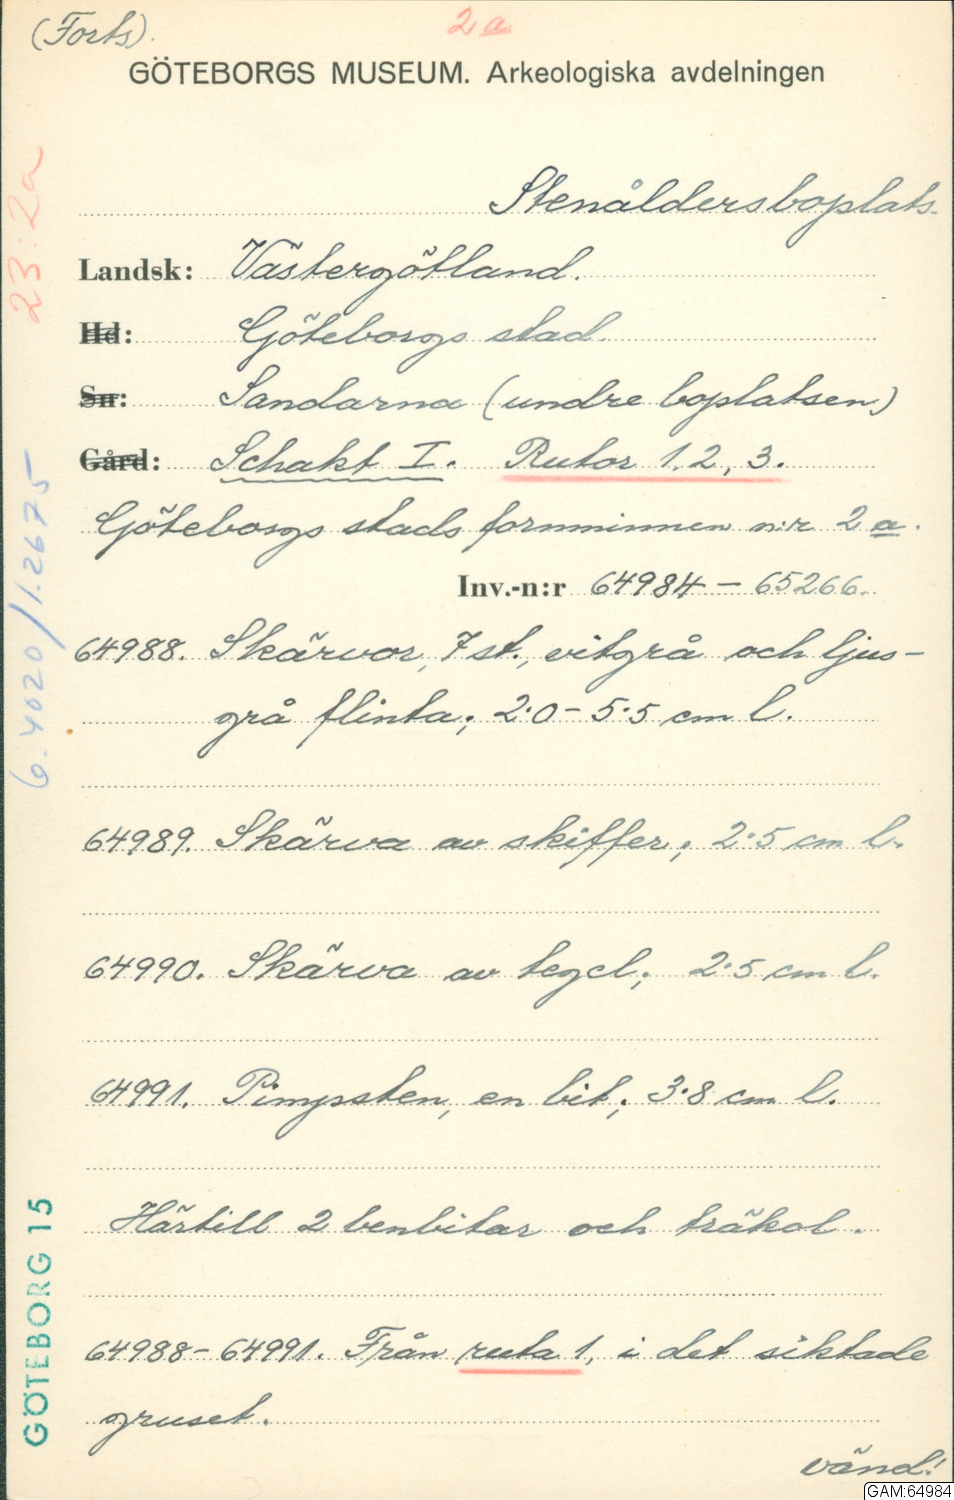 (Forts).
2a
GÖTEBORGS MUSEUM. Arkeologiska avdelningen
23:2a
Stenåldersboplats.
Landsk: Västergötland.
Hd: Göteborgs stad.
Sn: Sandarna (undre boplatsen)
Gård: Schakt I. Rutor 1, 2, 3.
Göteborgs stads fornminnen n:r 2a.
Inv.-n:r 64984 – 65266.
6.4020/1.2675
64988. Skärvor, 7 st., vitgrå och ljus-
grå flinta; 2·0 – 5·5 cm l.
64989. Skärva av skiffer; 2·5 cm l.
64990. Skärva av tegel; 2·5 cm l.
64991. Pimpsten, en bit; 3·8 cm l.
Härtill 2 benbitar och träkol.
GÖTEBORG 15
64988 – 64991. Från ruta 1, i det siktade
gruset.
vänd!
GAM:64984